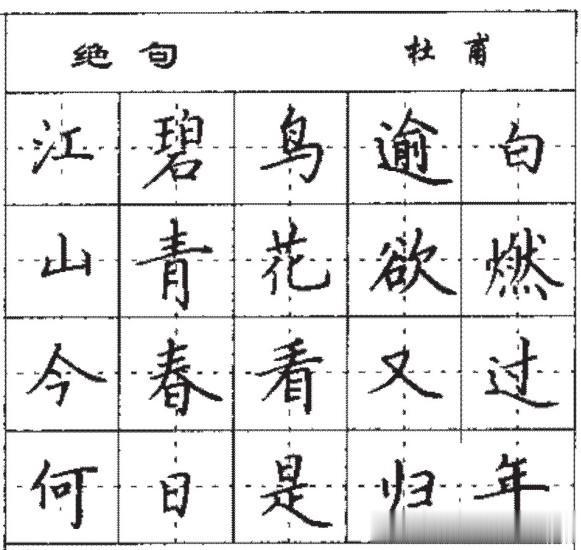 绝句 杜甫
江碧鸟逾白
山青花欲燃
今春看又过
何日是归年